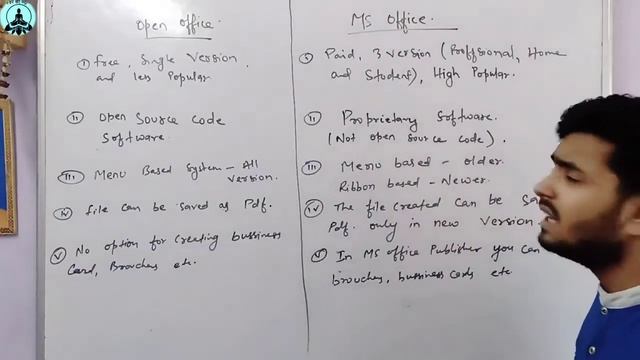 Open office.
(i) free, Single Version,
and less Popular.
(ii) open Source Code
Software.
(iii) Menu Based System - All
Version.
(iv) file can be saved as Pdf.
(v) No option for creating bussiness
Card, Brouches etc.
MS office.
(i) Paid, 3 version (Proffsional, Home
and Student), High Popular.
(ii) Proprietary Software.
(Not open source code).
(iii) Menu based - older.
Ribbon based - Newer.
(iv) The file created can be
Pdf. only in new version.
(v) In MS office Publisher you can
brouches, bussiness cards etc